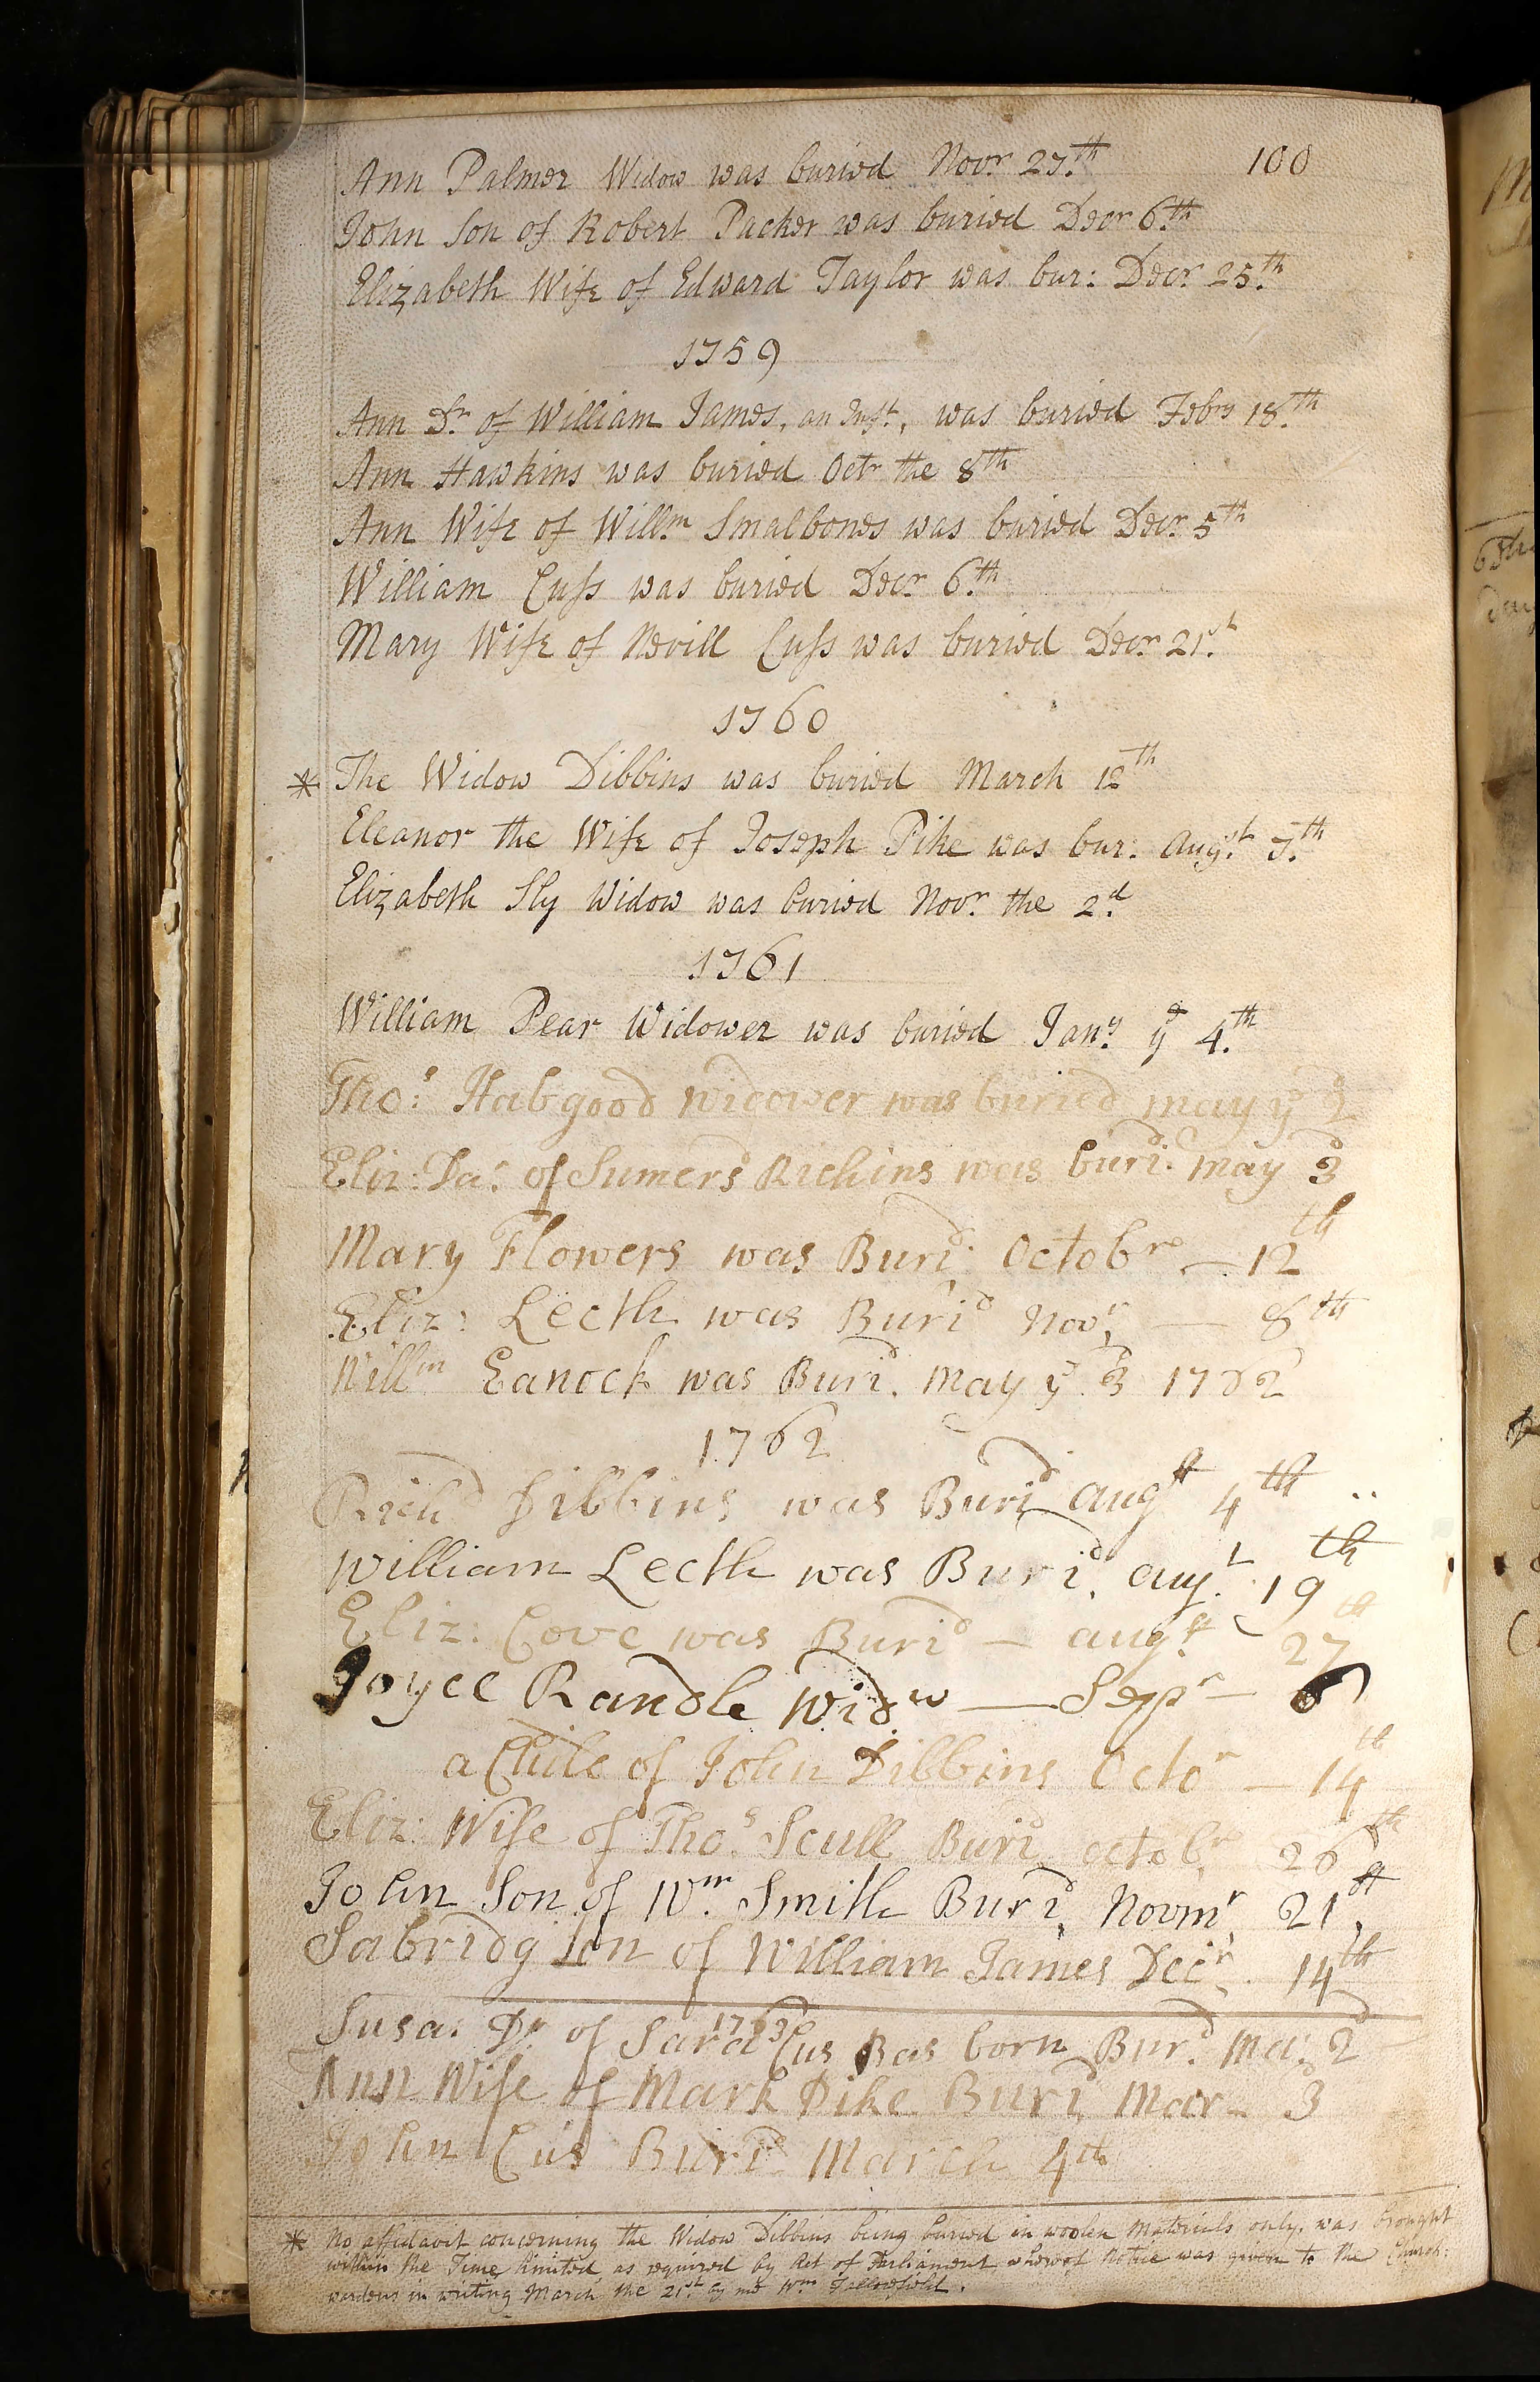 100
Ann Palmer Widow was buried Novr. 27th
John Son of Robert Packer was buried Decr 6th
Elizabeth Wife of Edward Taylor was bur: Decr. 25th
1759
Ann Dr. of William James, an Inft, was buried Febry 18th
Ann Hawkins was buried Octr the 8th
Ann Wife of Willm Smalbones was buried Decr. 5th
William Cuss was buried Decr 6th
Mary Wife of Nevill Cuss was buried Decr 21st
1760
* The Widow Dibbins was buried March 12th
Eleanor the Wife of Joseph Pike was bur: Augst 7th
Elizabeth Sly Widow was buried Novr. the 2d
1761
William Pear Widower was buried Jany ye 4th
Thos: Habgood widower was buried may ye 2
Eliz: Dar. of Sumers Richins was burid. may 3d
Mary Flowers was Burid. Octobr — 12th
Eliz: Leeth was Burid Novr — 8th
Willm Eanock was Burid. may ye 3d 1762
1762
Richd Dibbins was Burid augst 4th
William Leeth was Burid. augt. 19th
Eliz: Cove was Burid — augst 27th
Joyce Randle Widw — Sepr — 6
a Chile of John Dibbins Octor — 14th
Eliz: Wife of Thos. Scull Burid octobr 26th
John Son of Wm. Smith Burid. Novmr 21st
Sabridg son of William James Decr. 14th
1763
Susa. Dr of Sara Cus Bas born Burd. Ma: 2d
Ann Wife of Mark Pike Burid Mar — 3
John Cus Burid March 4th
* No affidavit concerning the Widow Dibbins being buried in woolen Materials only, was brought
within the Time limited as required by Act of Parliament whereof Notice was given to the Church-
wardens in writing March the 21st by me Wm Fallowfield.